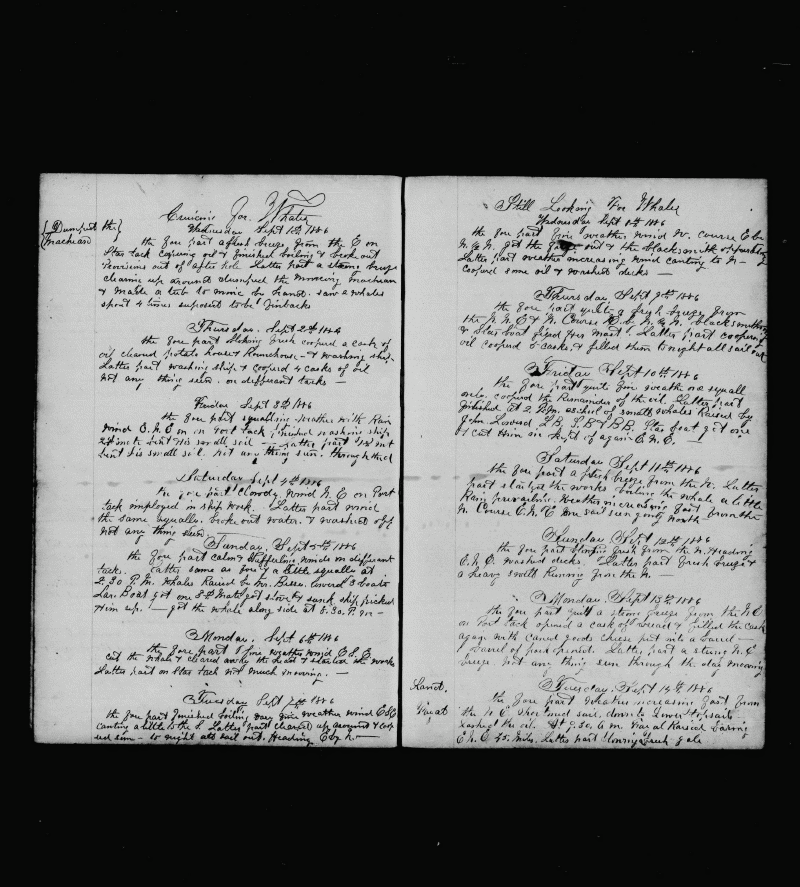 Cruising For Whales
{Dumped the}
{Machean}
Wednesday Sept 1st 1886
the fore part a fresh breeze from the E on
Star tack coopering oil & finished boiling & broke out
Provisions out of after hole Latter part a strong breeze
clearing up around dumped the mincing machean
& made a tub to mince by hand. saw 2 whales
spout 4 times suposed to be finbacks
Thursday. Sept 2nd 1886
the fore part blowing fresh cooperd a cask of
oil cleared potato house & Roundhouse & washing ship
Latter part washing ship & cooperd 4 casks of oil
Not any thing seen. on differant tacks —
Friday Sept 3rd 1886
the fore part squally weather with Rain
wind E.N.E on Port tack, finished washing ship
2nd mate bent his small sail — Latter part 4th mt
bent his small sil. Not any thing seen. through the d
Saturday Sept 4th 1886
the fore part cloudy wind N. E on Port
tack imployed in ship work. Latter part wind
the same squally. broke out water. & washed off
Not any thing seen
Sunday. Sept 5th 1886
the fore part calm & baffeling winds on differant
tack. Latter same as fore & a little squally at
2.30 P.M. Whales Raised by Mr. lowerd 3 boats
Lar. Boat got one 3d Mate got stove & sunk ship picked
Him up. — got the whale along side at 5.30. P.m —
Monday. Sept 6th 1886
the fore part fine weather wind E S. E
cut the whale & cleared away the head & started the works
Latter part on Star tack Not much moving. —
Tuesday Sept 7th 1886
the fore part finished boiling very fine weather wind ESE
canting a little to the S. Latter part cleared up around & coop
erd sum — to night all sail out. Heading E by N. —
Still Looking For Whales
Wednesday Sept 8th 1886
the fore part fine weather wind W. course E by
N. & N. got the forge out & the blacksmith opperating
Latter part weather increasing wind canting to N —
cooperd some oil & washed decks —
Thursday. Sept 9th 1886
the fore part quite a fresh breeze from
the N. N. E & N. Course E by N. & N. blacksmithing
& Star boat fixed fore mast. Latter part coopering
oil cooperd 6 casks, & filled them to night all sail out
Friday Sept 10th 1886
the fore part quite fine weather no squall
only. cooperd the Remainder of the oil. Latter part
finished at 2 P.m. a school of small whales Raised by
John Loverd L.B. S.B & B.B. Star boat got one
& cut Him in kept of again E. N. E. —
Saturday Sept 11th 1886
the fore part a fresh breeze from the N. Latter
part started the works boiling the whale a little
Rain prevailing. Weather increasing fast from the
N. Course E.N.E one sail seen going North
Sunday Sept 12th 1886
the fore part blowing fresh from the N. Heading
E.N.E. washed decks. Latter part fresh breeze &
a heavy swell Running from the N —
Monday. Sept 13th 1886
the fore part quite a strong breeze from the N.E
on Port tack opened a cask of bread & filled the cask
again with caned goods cheese put into a barrel —
1 barrel of pork opened. Latter part a strong N. E
breeze Not any thing seen through the day meaning
Tuesday. Sept 14th 1886
Land.
the fore part weather increasing fast from
the N. E. shortened sail, down to Lower topsails
Lashed the oil. At 9.30. A. m Raised Baring
E.N.E 45 miles. Latter part blowing fresh gale